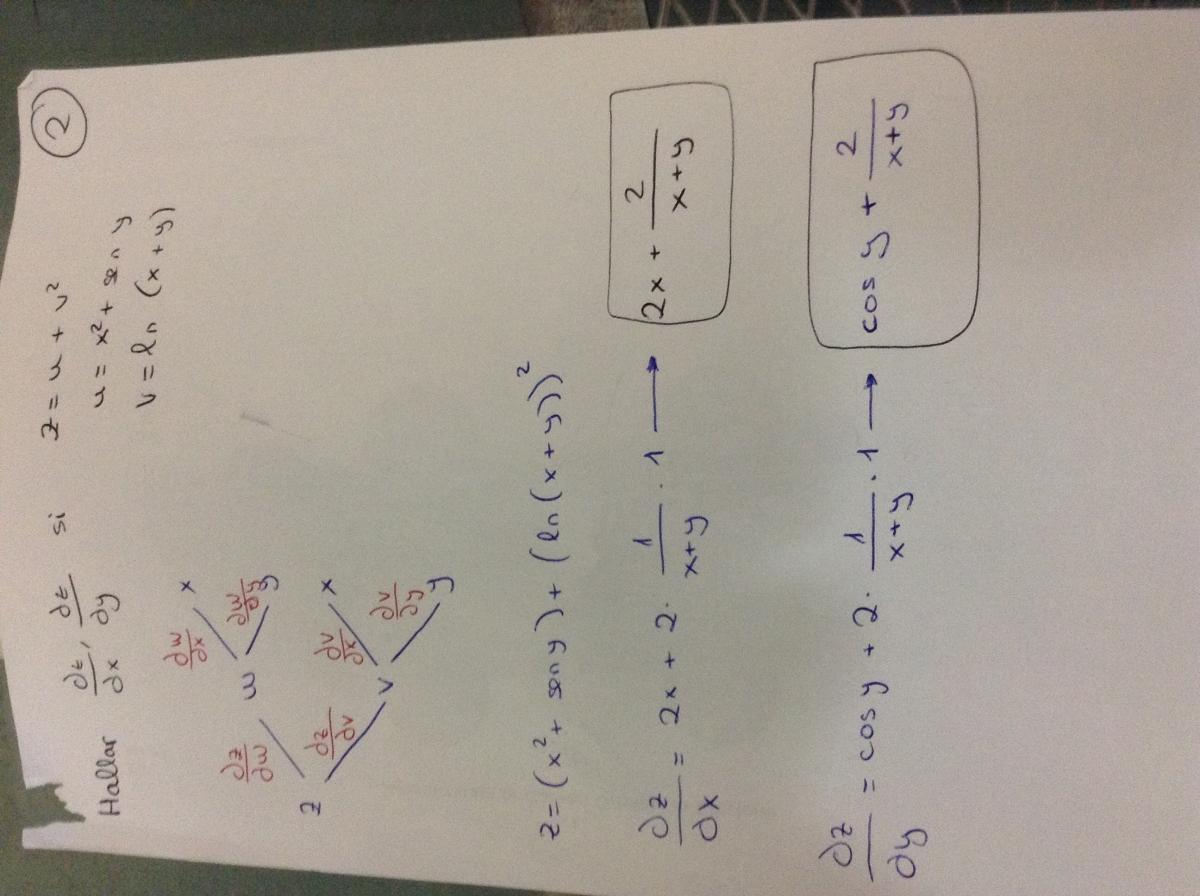 ②
Hallar ∂z/∂x, ∂z/∂y si z = u + v²
u = x² + sen y
v = ln (x + y)
∂w/∂x x
∂z/∂w w ∂w/∂y y
z
∂z/∂v v ∂v/∂x x
∂v/∂y y
z = (x² + sen y) + (ln (x + y))²
∂z/∂x = 2x + 2 · 1/x+y · 1 → 2x + 2/x+y
∂z/∂y = cos y + 2 · 1/x+y · 1 → cos y + 2/x+y